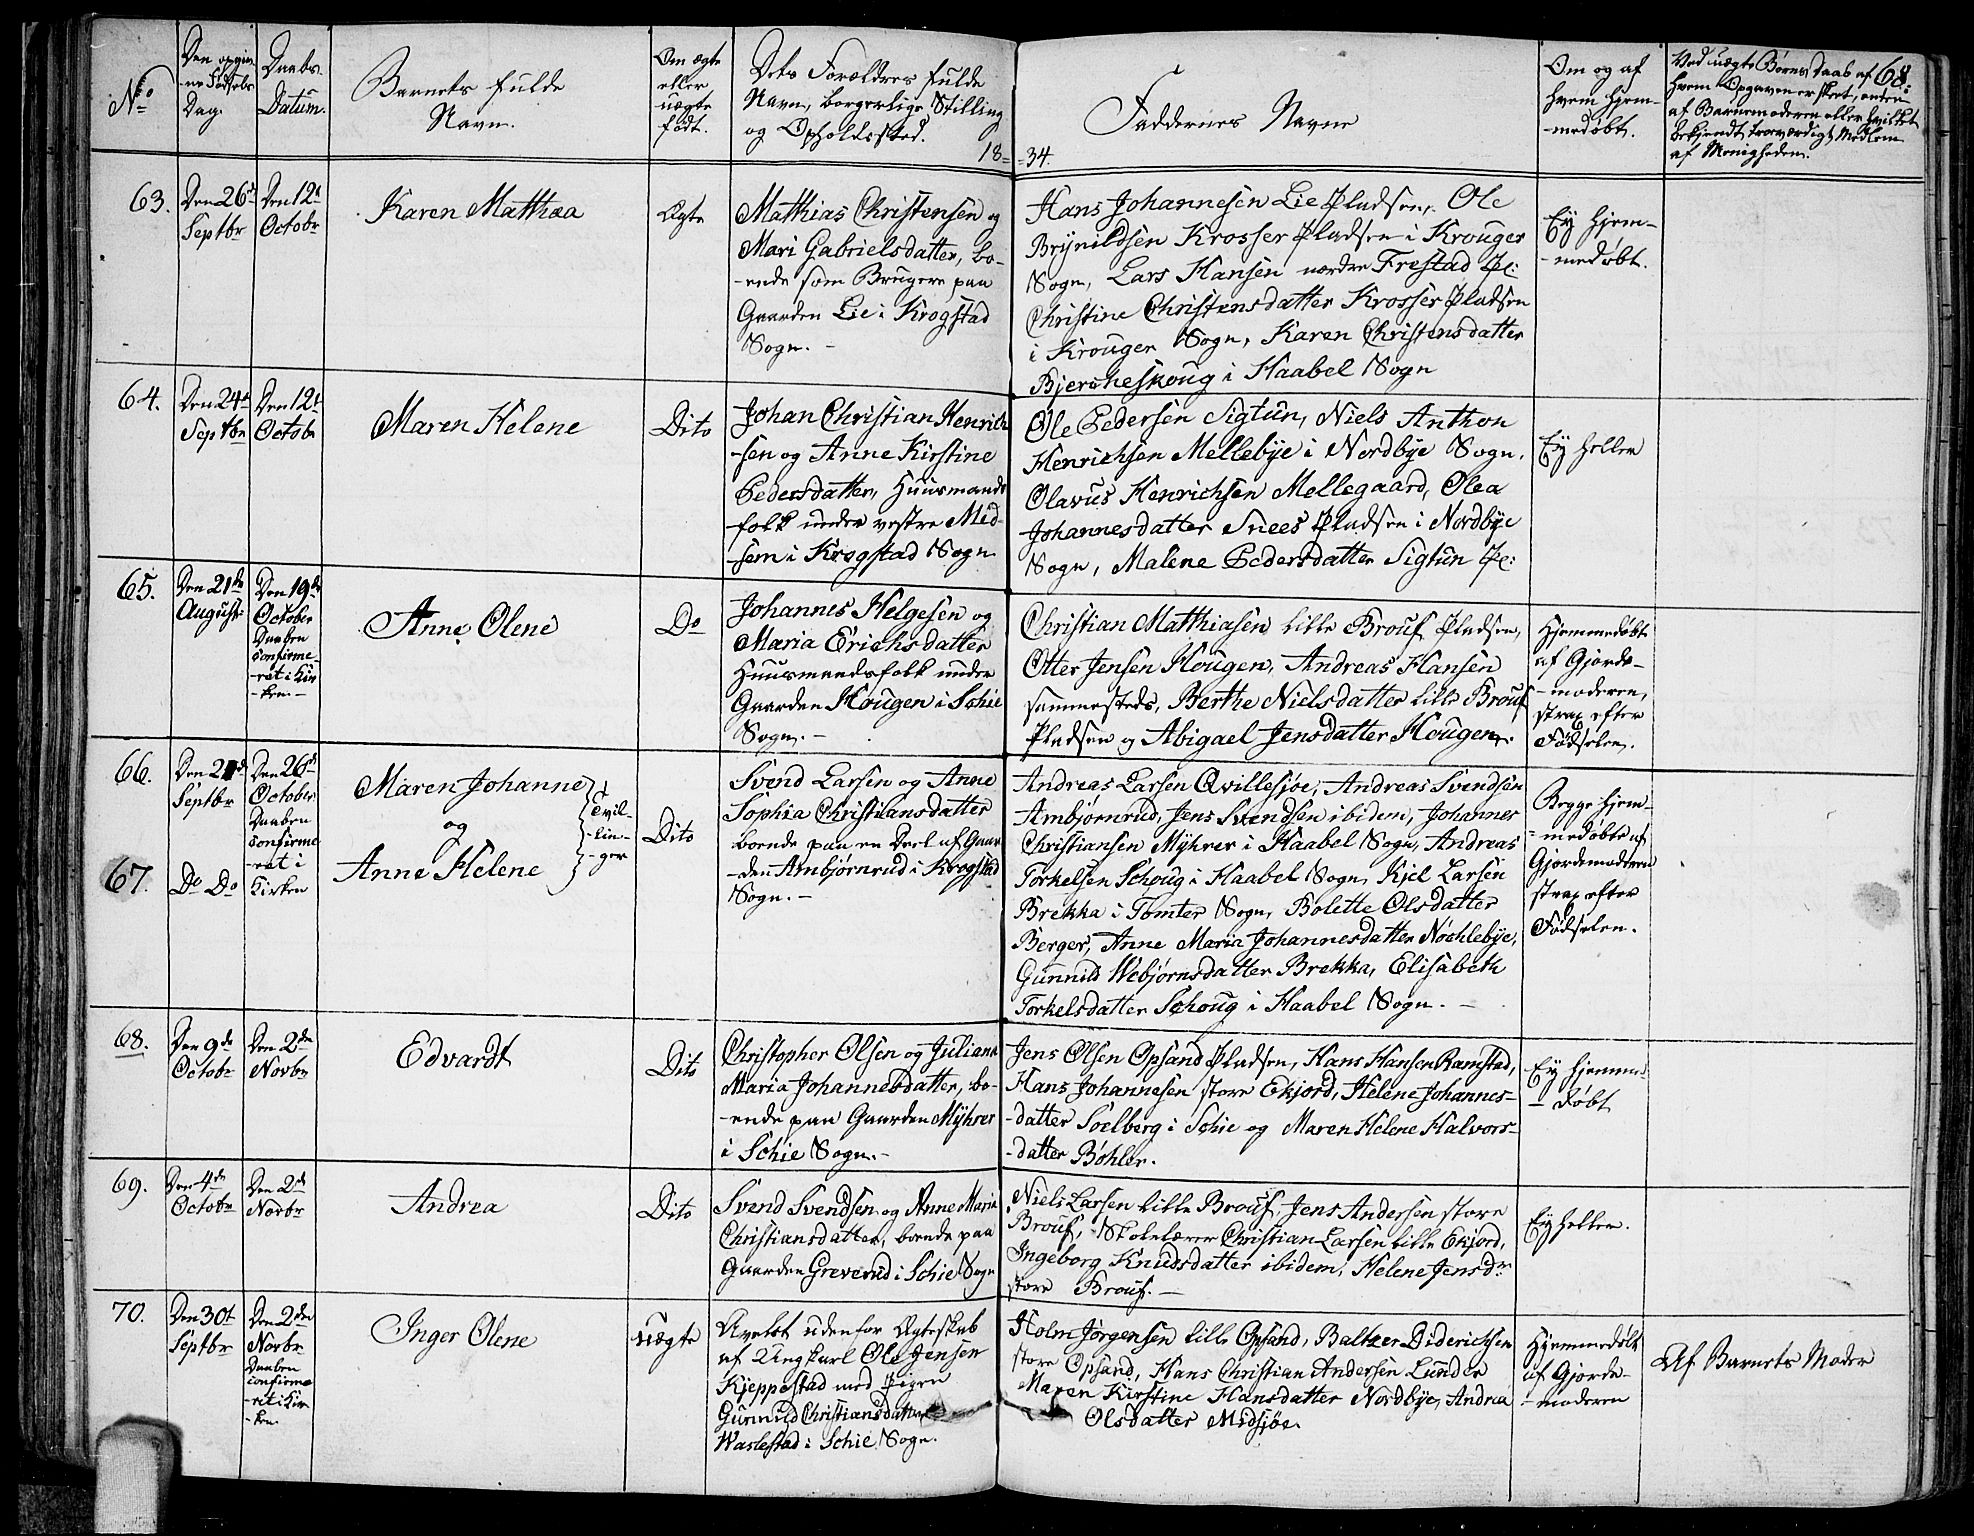 No
Den opgiv-
ne Fødsels
Dag.
Daabs
Datum.
Barnets fulde
Navn.
Om ægte
eller
uægte
født.
Dets Forældres fulde
Navn, borgerlige Stilling
og Opholdssted.
18=
=34.
Faddernes Navne
Om og af
hvem hjem-
-medøbt.
Ved uægte Børns Daab af
hvem Opgaven er skeet, enten
af Barnemoderen eller hvilket
bekjendt, troværdigt Medlem
af Menigheden.
68.
63.
Den 26de
Septbr
Den 12te
Octobr
Karen Matthæa
Ægte
Mathias Christensen og
Mari Gabrielsdatter, bo-
-ende som Brugere paa
Gaarden Lie i Krogstad
Sogn. -
Hans Johannesen Lie Pladsen, Ole
Brynildsen Krosser Pladsen i Krouger
Sogn, Lars Hansen nordre Frestad Pl:
Christine Christensdatter Krosser Pladsen
i Krouger Sogn, Karen Christensdatter
Bjerkeskoug i Haabel Sogn
Ey hjem-
-medøbt.
64.
Den 24de
Septbr
Den 12te
Octobr
Maren Helene
Dito
Johan Christian Henrich
-sen og Anne Kirstine
Pedersdatter, Huusmands
folk under vestre Mid-
-sem i Krogstad Sogn
Ole Pedersen Sigtun, Niels Anthon
Henrichsen Mellebye i Nordbye Sogn.
Olavus Henrichsen Mellegaard, Olea
Johannesdatter Snees Pladsen i Nordbye
Sogn, Malene Pedersdatter Sigtun Pl:
Ey heller
65.
Den 21de
August
Den 19de
October
Daaben
confirme-
-ret i Kir
-ken.-
Anne Olene
Do
Johannes Helgesen og
Maria Erichsdatter
Huusmandsfolk under
Gaarden Hougen i Schie
Sogn. -
Christian Matthiasen lille Brouf Pladsen,
Otter Jensen Hougen, Andreas Hansen
sammesteds, Berthe Nielsdatter lille Brouf
Pladsen og Abigael Jensdatter Hougen.
Hjemmedøbt
af Gjorde-
-moderen,
strax efter
Fødselen.
66.
Den 21de
Septbr
Den 26de
October
Daaben
confirme
-ret i
Kirken
Maren Johanne
og
Tvil-
-lin-
-ger
67.
Do Do
Anne Helene
Dito
Svend Larsen og Anne
Sophia Christiansdatter
boende paa en Deel af Gaar
-den Ambjørnrud i Krogstad
Sogn. -
Andreas Larsen Qvillesjøe, Andreas Svendsen
Ambjørnrud, Jens Svendsen ibidem, Johannes
Christiansen Mÿhrer i Haabel Sogn, Andreas
Torkelsen Schoug i Haabel Sogn, Kjel Larsen
Brekka i Tomter Sogn, Bolette Olsdatter
Berger, Anne Maria Johannesdatter Nøchlebye,
Gunnild Webjørnsdatter Brekka, Elisabeth
Torkelsdatter Schoug i Haabel Sogn. -
Begge hjem-
-medøbte af
Gjordemoderen
strax efter
Fødselen.
68.
Den 9de
Octobr
Den 2den
Novbr
Edvardt
Dito
Christopher Olsen og Juliana
Maria Johannesdatter, bo-
-ende paa Gaarden Mÿhrer
i Schie Sogn.-
Jens Olsen Opsand Pladsen, Hans Hansen Ramstad,
Hans Johannesen store Ekjord, Helene Johannes-
-datter Soelberg i Schie og Maren Helene Halvors-
-datter Bøhler.
Ey hjemme-
-døbt
69.
Den 4de
Octobr
Den 2de
Novbr
Andrea
Dito
Svend Svendsen og Anne Maria
Christiansdatter, boende paa
Gaarden Greverud i Schie Sogn
Niels Larsen lille Brouf, Jens Andersen store
Brouf, Skolelærer Christian Larsen lille Ekjord,
Ingeborg Knudsdatter ibidem, Helene Jensdr
store Brouf. -
Ey heller.
70.
Den 30te
Septbr
Den 2den
Novbr
Daaben
confirme
-ret i Kir
-ken.
Inger Olene
uægte
Avlet udenfor Ægteskab
af Ungkarl Ole Jensen
Kjeppestad med Pigen
Gunnild Christiansdatter
Warlestad i Schie Sogn.
Holm Jørgensen lille Opsand, Baltzer Diderichsen
store Opsand, Hans Christian Andersen Lunder
Maren Kirstine Hansdatter Nordbye, Andrea
Olsdatter Midsjøe
Hjemmedøbt
af Gjorde-
-moderen
Af Barnets Moder